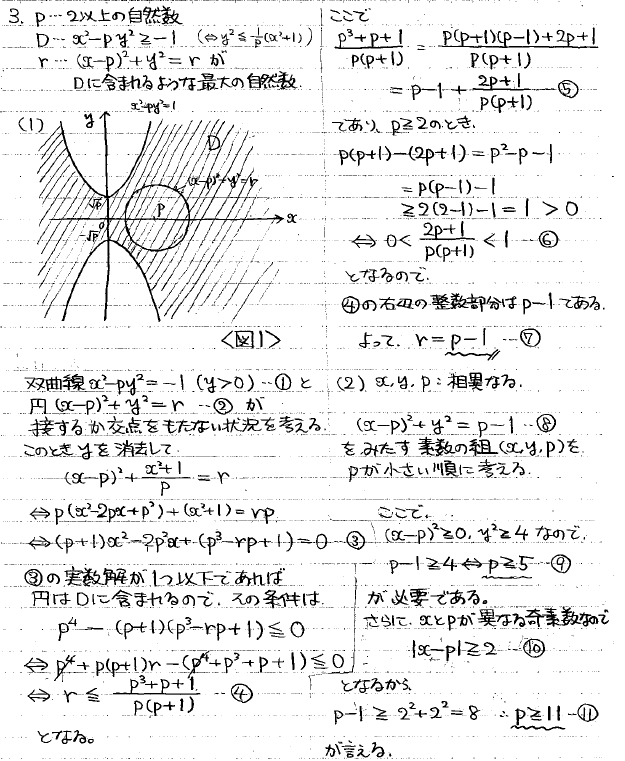 3. p…2以上の自然数
D… x²-py²≧-1 (⇔y²≦1/p(x²+1))
r… (x-p)²+y²=r が
Dに含まれるような最大の自然数
(1)
x²-py²=1
y
D
(x-p)²+y²=r
√p
p
0
x
-√p
<図1>
双曲線 x²-py²=-1 (y>0) …① と
円 (x-p)²+y²=r …② が
接するか交点をもたない状況を考える.
このとき yを消去して
(x-p)²+(x²+1)/p=r
⇔p(x²-2px+p²)+(x²+1)=rp
⇔(p+1)x²-2p²x+(p³-rp+1)=0 …③
③の実数解が1つ以下であれば
円はDに含まれるので、その条件は
p⁴-(p+1)(p³-rp+1)≦0
⇔ p⁴+p(p+1)r-(p⁴+p³+p+1)≦0
⇔ r≦(p³+p+1)/(p(p+1)) …④
となる。
ここで
(p³+p+1)/(p(p+1))=(p(p+1)(p-1)+2p+1)/(p(p+1))
=p-1+(2p+1)/(p(p+1)) …⑤
であり、p≧2のとき.
p(p+1)-(2p+1)=p²-p-1
=p(p-1)-1
≧2(2-1)-1=1>0
⇔ 0<(2p+1)/(p(p+1))<1 …⑥
となるので.
④の右辺の整数部分はp-1である.
よって、r=p-1 …⑦
(2) x,y,p:相異なる.
(x-p)²+y²=p-1 …⑧
をみたす素数の組(x,y,p)を
pが小さい順に考える.
ここで.
(x-p)²≧0, y²≧4 なので.
p-1≧4⇔p≧5 …⑨
が必要である。
さらに、xとpが異なる奇素数なので
|x-p|≧2 …⑩
となるから、
p-1≧2²+2²=8 ∴p≧11 …⑪
が言える.